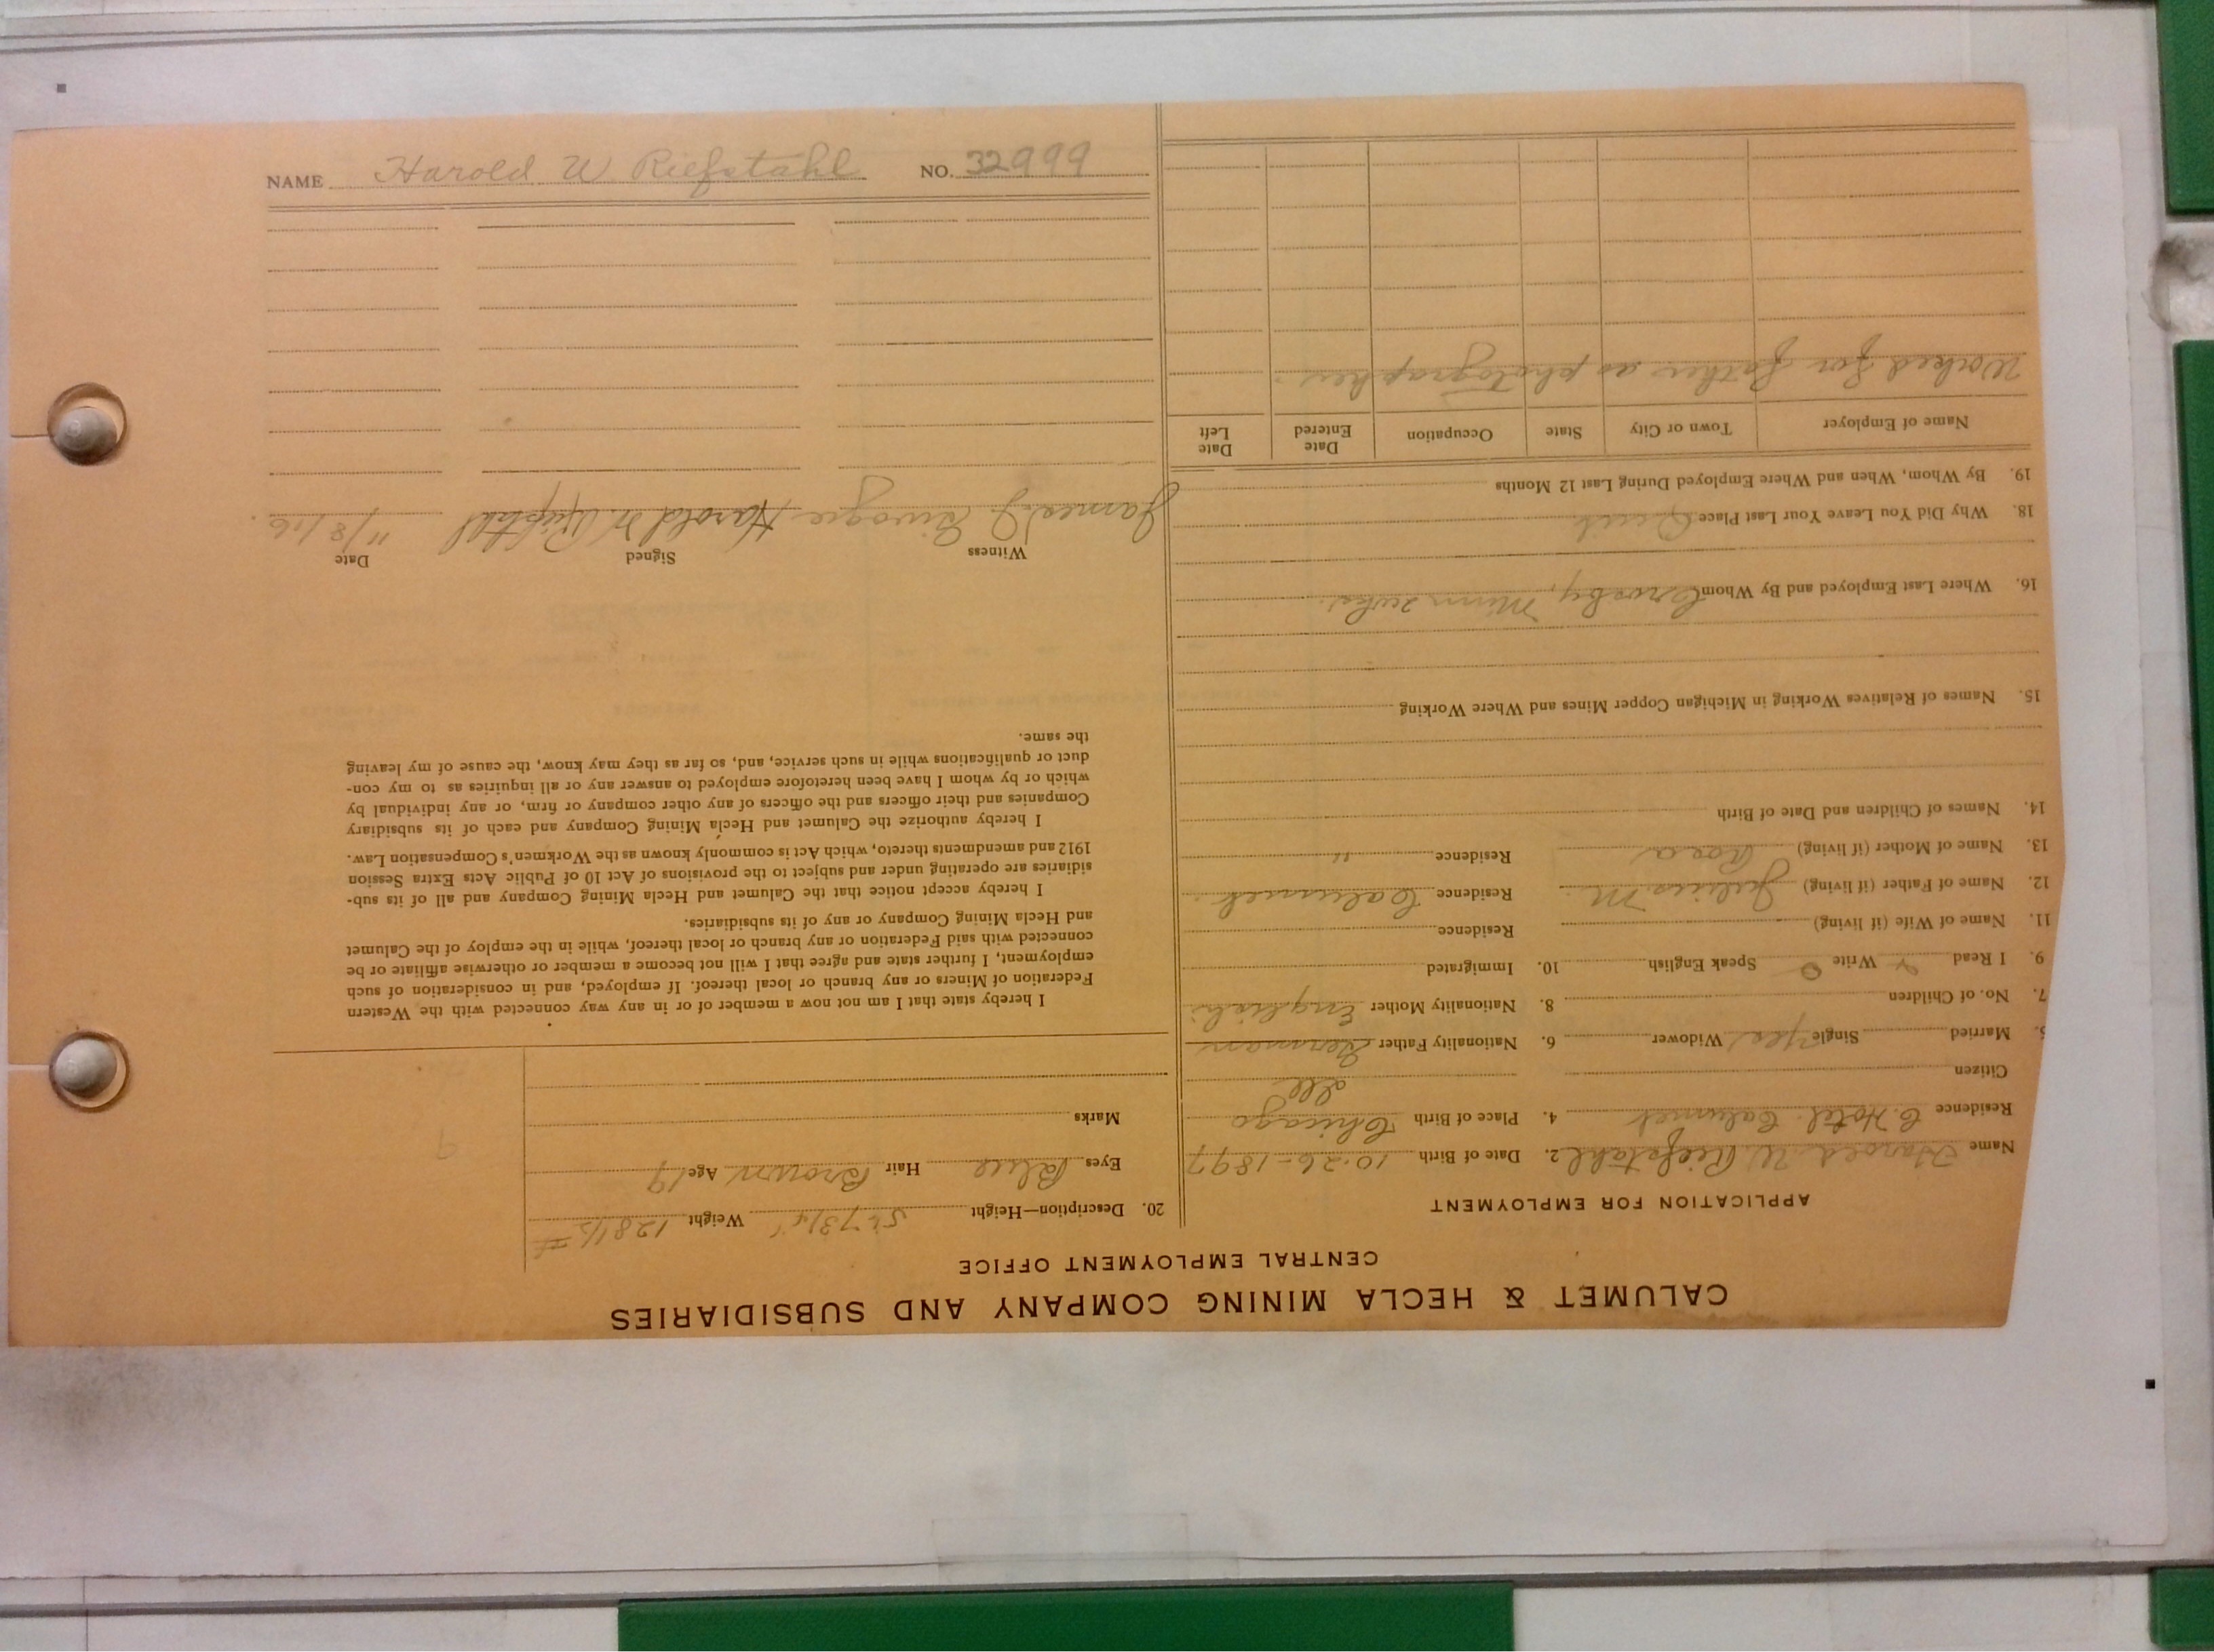 NAME Harold W Riefstahl NO. 32999
CALUMET & HECLA MINING COMPANY AND SUBSIDIARIES
CENTRAL EMPLOYMENT OFFICE
APPLICATION FOR EMPLOYMENT
Name Harold W. Riefstahl 2. Date of Birth 10-26-1897
Residence C. Hotel. Calumet 4. Place of Birth Chicago
Ill
Citizen
5. Married Single Yes Widower 6. Nationality Father German
7. No. of Children 8. Nationality Mother English
9. I Read Write Speak English 10. Immigrated
11. Name of Wife (if living) Residence
12. Name of Father (if living) Julius M. Residence Calumet
13. Name of Mother (if living) Rosa Residence "
14. Names of Children and Date of Birth
15. Names of Relatives Working in Michigan Copper Mines and Where Working
16. Where Last Employed and By Whom Crosby, Minn
18. Why Did You Leave Your Last Place Quit
19. By Whom, When and Where Employed During Last 12 Months
Name of Employer Town or City State Occupation Date Entered Date Left
Worked for father as photographer.
20. Description—Height 5' 7 3/4" Weight 128 1/2 #
Eyes Blue Hair Brown Age 19
Marks
I hereby state that I am not now a member of or in any way connected with the Western
Federation of Miners or any branch or local thereof. If employed, and in consideration of such
employment, I further state and agree that I will not become a member or otherwise affiliate or be
connected with said Federation or any branch or local thereof, while in the employ of the Calumet
and Hecla Mining Company or any of its subsidiaries.
I hereby accept notice that the Calumet and Hecla Mining Company and all of its sub-
sidiaries are operating under and subject to the provisions of Act 10 of Public Acts Extra Session
1912 and amendments thereto, which Act is commonly known as the Workmen's Compensation Law.
I hereby authorize the Calumet and Hecla Mining Company and each of its subsidiary
Companies and their officers and the officers of any other company or firm, or any individual by
which or by whom I have been heretofore employed to answer any or all inquiries as to my con-
duct or qualifications while in such service, and, so far as they may know, the cause of my leaving
the same.
Witness Signed Date
James J. Harold W. Riefstahl 11/8/16